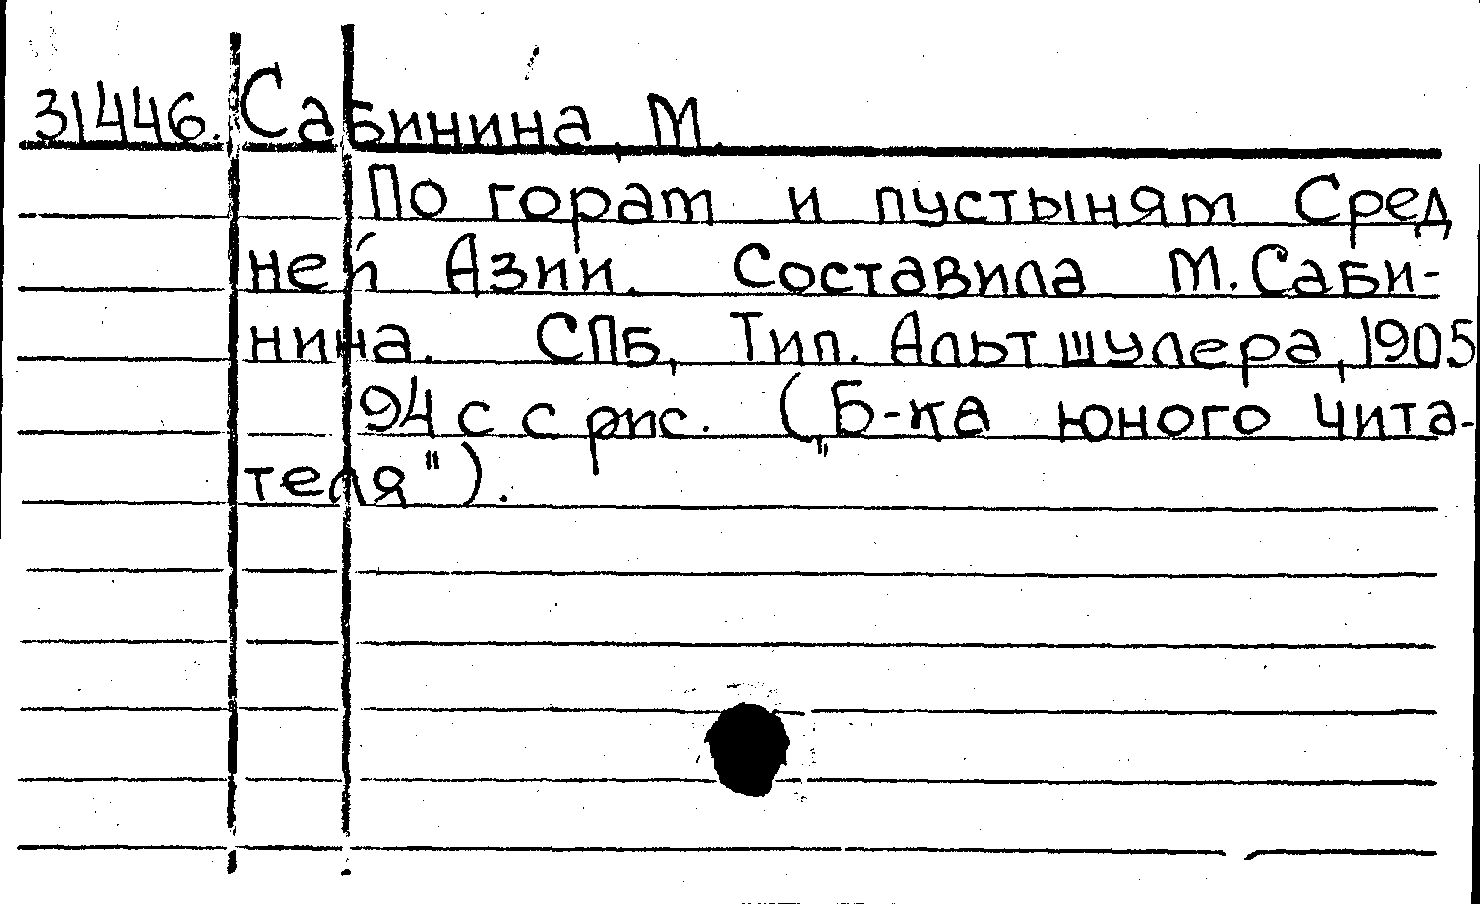 31446. Сабинина, М.
По горам и пустыням Сред
ней Азии. Составила М. Саби-
нина. СПБ, Тип. Альтшулера, 1905
94 с с рис. („Б-ка юного чита-
теля").